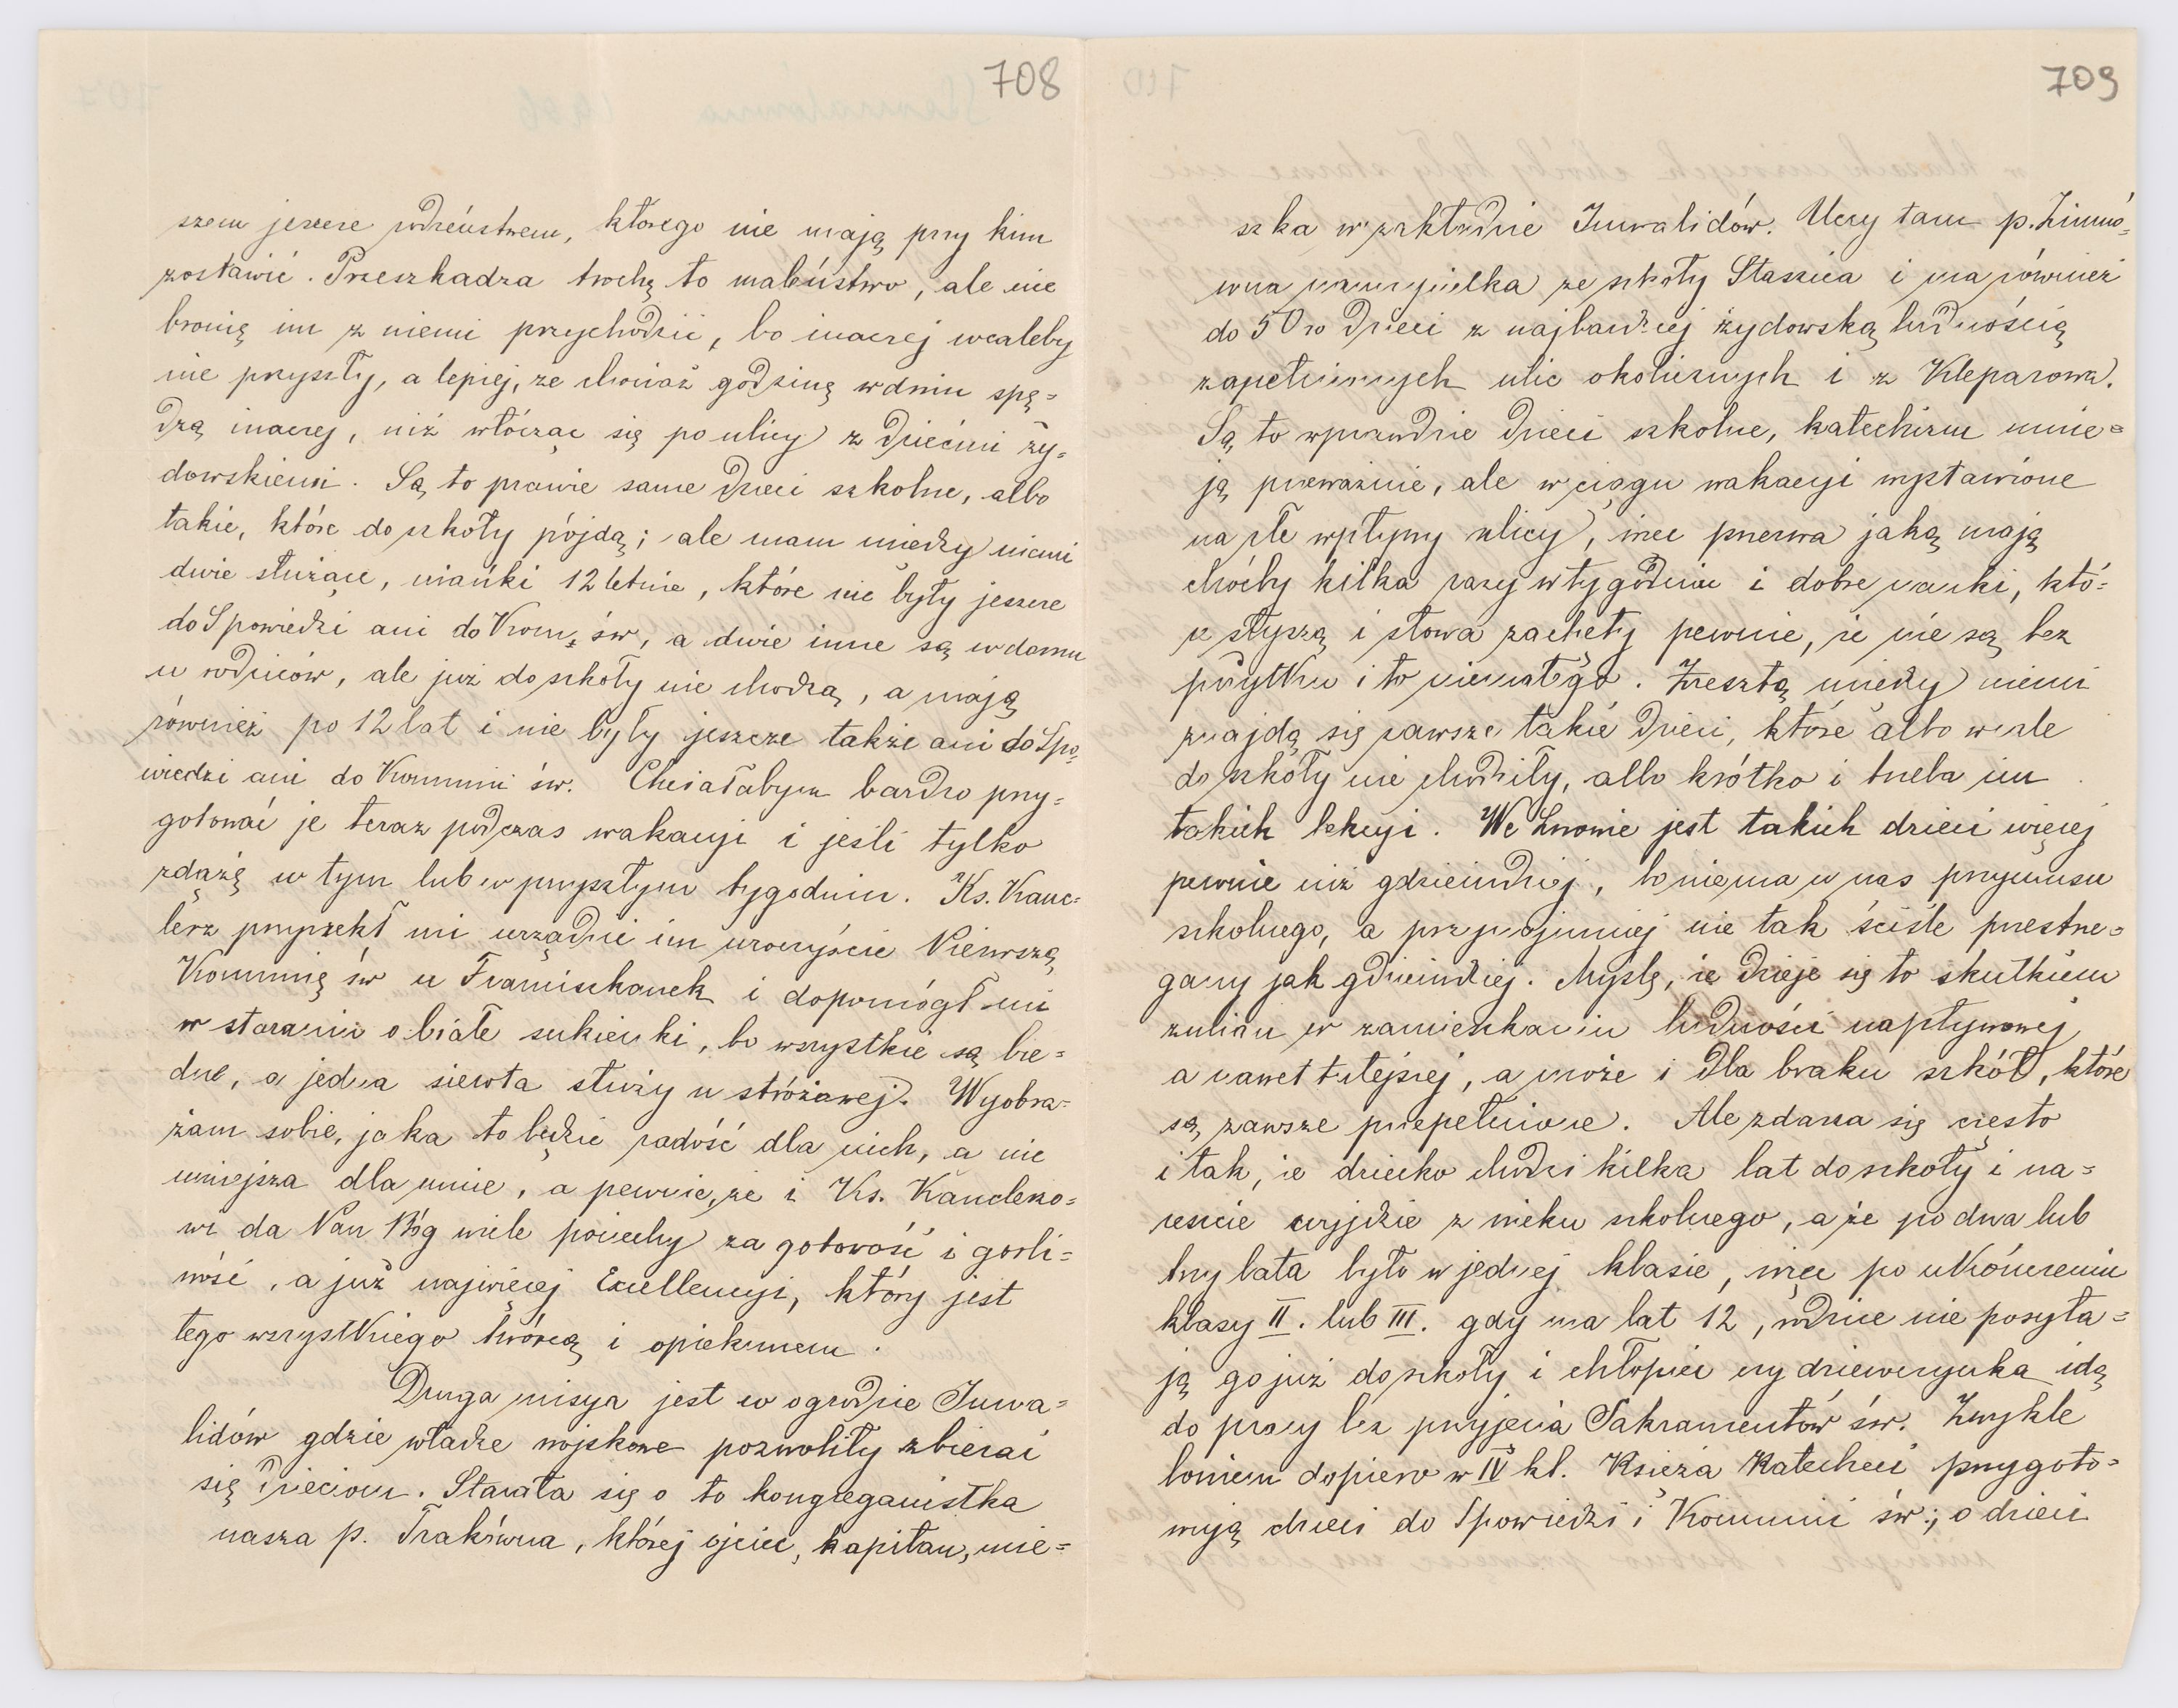 708
szem jeszcze rodzeństwem, którego nie mają przy kim
zostawić. Przeszkadza trochę to maleństwo, ale nie
bronię im z niemi przychodzić, bo inaczej wcaleby
nie przyszły, a lepiej, że chociaż godzinę w dniu spę=
dzą inaczej, niż włócząc się po ulicy z dziećmi ży=
dowskiemi. Są to prawie same dzieci szkolne, albo
takie, które do szkoły pójdą; ale mam między niemi
dwie służące, niańki 12 letnie, które nie były jeszcze
do Spowiedzi ani do Kom. św, a dwie inne są w domu
u rodziców, ale już do szkoły nie chodzą, a mają
również po 12 lat i nie były jeszcze także ani do Spo=
wiedzi ani do Kommunii św. Chciałabym bardzo przy=
gotować je teraz podczas wakacyi i jeśli tylko
zdążę w tym lub w przyszłym tygodniu. Ks. Kanc=
lerz przyrzekł mi urządzić im uroczyście Pierwszą
Kommunię św u Franciszkanek i dopomógł mi
w staraniu o białe sukienki, bo wszystkie są bie=
dne, a jedna sierota służy u stróżowej. Wyobra=
żam sobie, jaka to będzie radość dla nich, a nie
mniejsza dla mnie, a pewnie, że i Ks. Kanclerzo=
wi da Pan Bóg wiele pociechy za gotowość i gorli=
wość, a już najwięcej Excellencyi, który jest
tego wszystkiego twórcą i opiekunem.
Druga misya jest w ogrodzie Inwa=
lidów gdzie władze wojskowe pozwoliły zbierać
się dzieciom. Starała się o to kongreganistka
nasza p. Frakówna, której ojciec, kapitan, mie=
709
szka w zakładzie Inwalidów. Uczy tam p. Zimmó=
wna nauczycielka ze szkoły Staszica i ma również
do 50ro dzieci z najbardziej żydowską ludnością
zapełnionych ulic okolicznych i z Kleparowa.
Są to wprawdzie dzieci szkolne, katechizm umie=
ją przeważnie, ale w ciągu wakacyi wystawione
na złe wpływy ulicy, więc przerwa jaką mają
choćby kilka razy w tygodniu i dobre nauki, któ=
re słyszą i słowa zachęty pewnie, że nie są bez
pożytku i to niemałego. Zresztą między niemi
znajdą się zawsze takie dzieci, które albo wcale
do szkoły nie chodziły, albo krótko i trzeba im
takich lekcyi. We Lwowie jest takich dzieci więcej
pewnie niż gdzieindziej, bo niema u nas przymusu
szkolnego, a przynajmniej nie tak ściśle przestrze=
gany jak gdzieindziej. Myślę, że dzieje się to skutkiem
zmian w zamieszkaniu ludności napływowej
a nawet tutejszej, a może i dla braku szkół, które
są zawsze przepełnione. Ale zdarza się często
i tak, że dziecko chodzi kilka lat do szkoły i na=
reszcie wyjdzie z wieku szkolnego, a że po dwa lub
trzy lata było w jednej klasie, więc po ukończeniu
klasy II. lub III. gdy ma lat 12, rodzice nie posyła=
ją go już do szkoły i chłopiec czy dziewczynka idą
do pracy bez przyjęcia Sakramentów św. Zwykle
bowiem dopiero w IV kl. Księża Katecheci przygoto=
wują dzieci do Spowiedzi i Kommunii św.; o dzieci